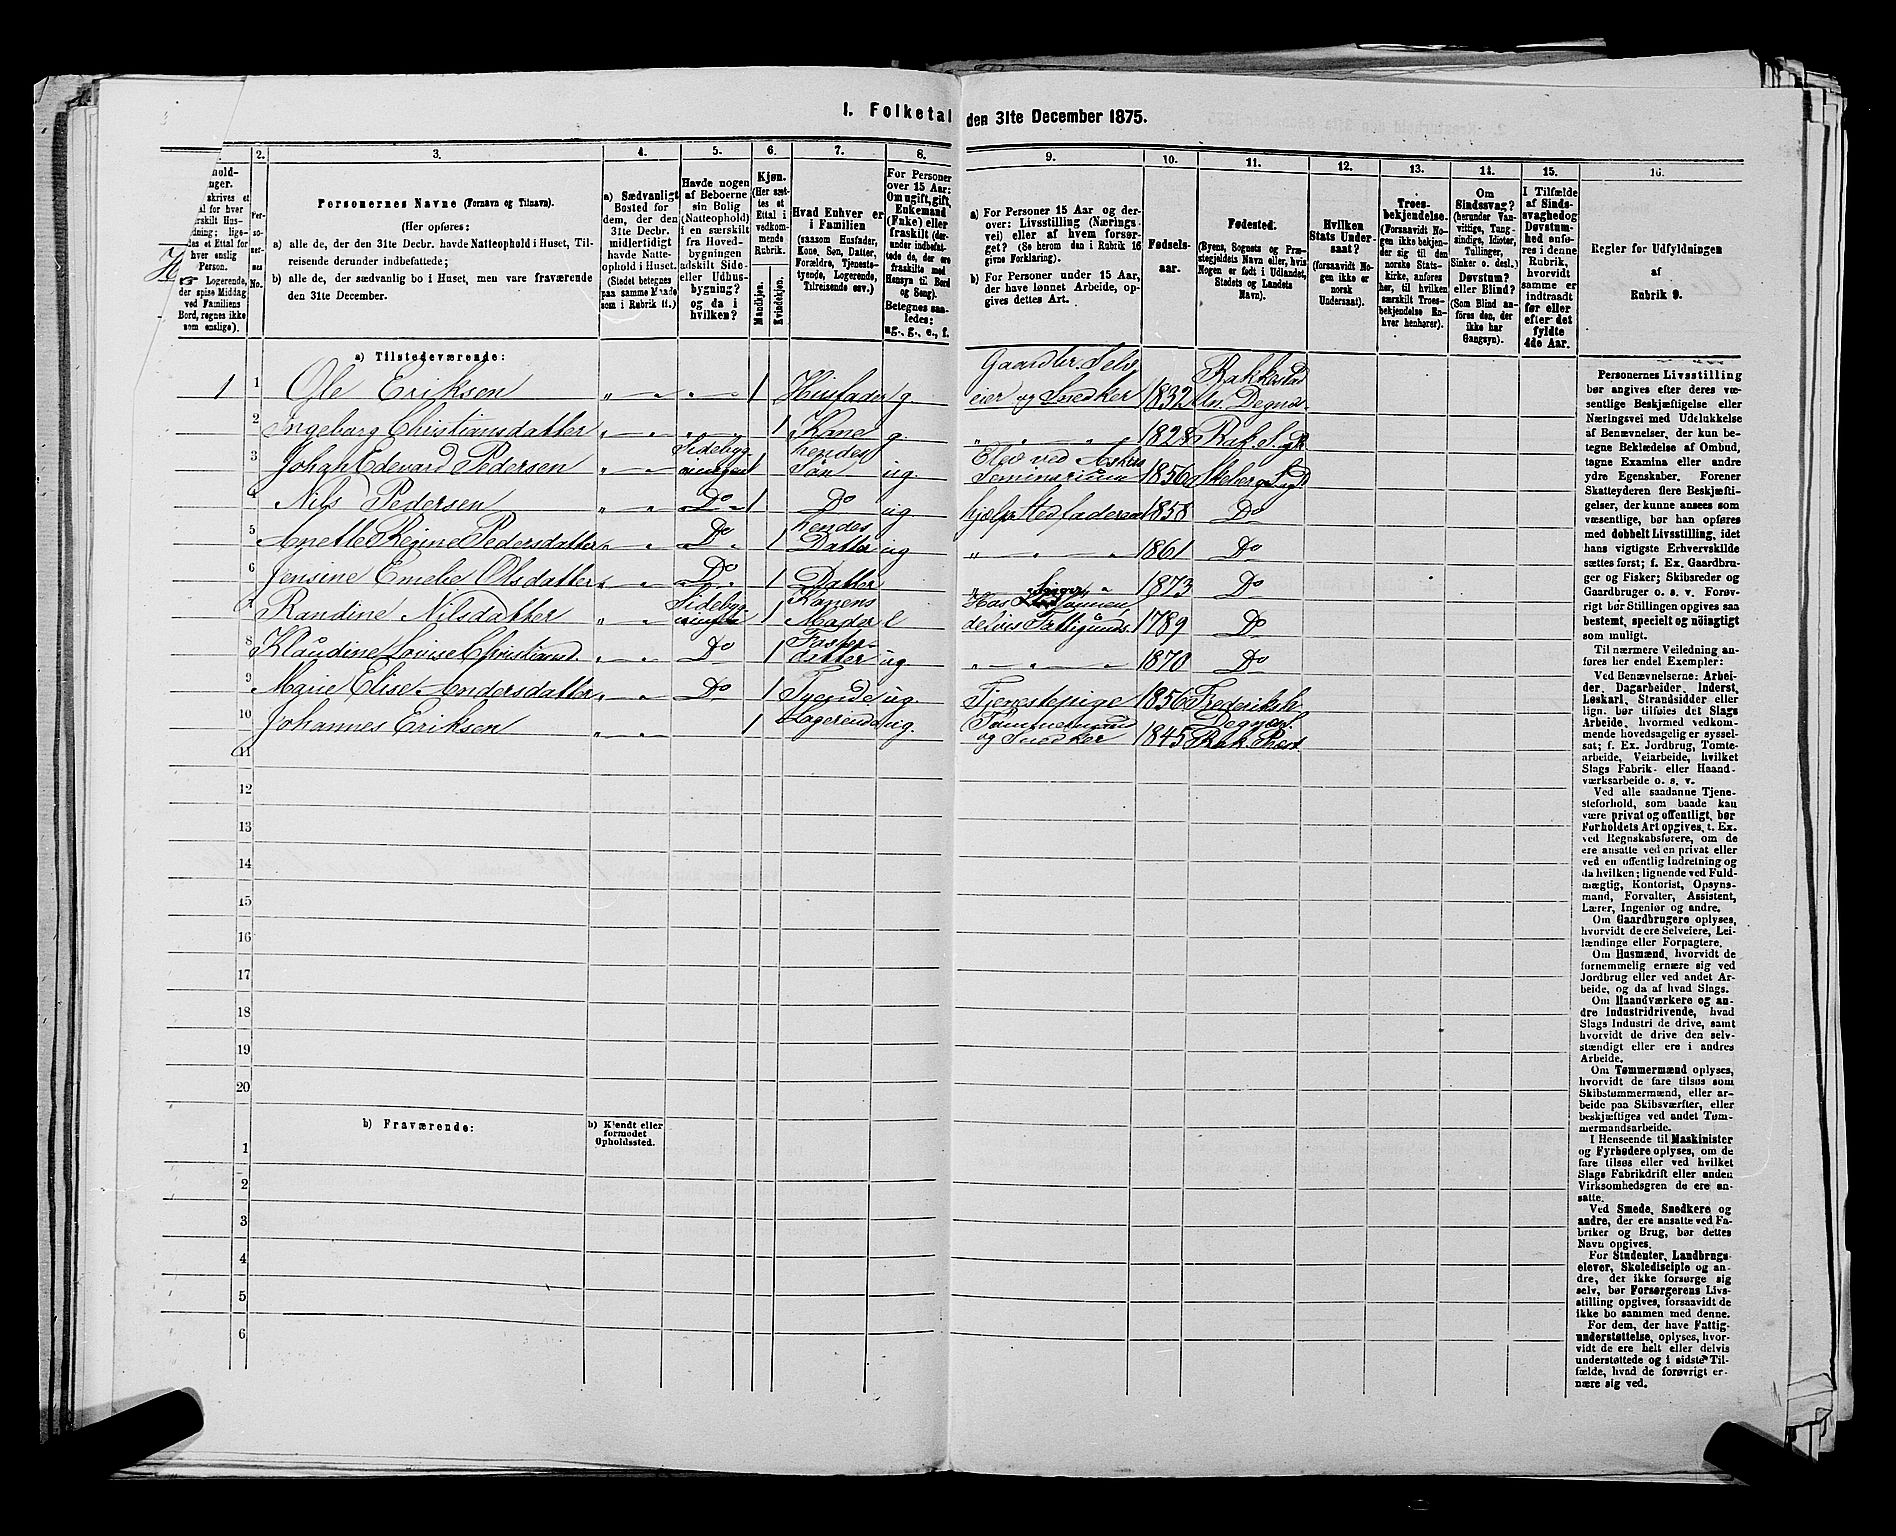 I. Folketal den 31te December 1875.
2. 3. 4. 5. 6. 7. 8. 9. 10. 11. 12. 13. 14. 15. 16.
Personernes Navne (Fornavn og Tilnavn).
(Her opføres:
a) alle de, der den 31te Decbr. havde Natteophold i Huset, Til-
reisende derunder indbefattede;
b) alle de, der sædvanlig bo i Huset, men vare fraværende
den 31te December.
a) Sædvanligt
Bosted for
dem, der den
31te Decbr.
midlertidigt
havde Natte-
ophold i Huset.
(Stedet betegnes
paa samme Maade
som i Rubrik 11.)
Havde nogen
af Beboerne
sin Bolig
(Natteophold)
i en særskilt
fra Hoved-
bygningen
adskilt Side-
eller Udhus-
bygning?
og da i
hvilken?
Kjøn.
(Her sæt-
tes et
Ettal i
vedkom-
mende
Rubrik.
Mandkjøn.
Kvindekjøn.
Hvad Enhver er
i Familien
(saasom Husfader,
Kone, Søn, Datter,
Forældre, Tjeneste-
tyende, Logerende,
Tilreisende osv.)
For Personer
over 15 Aar:
Om ugift, gift,
Enkemand
(Enke) eller
fraskilt (der-
under indbefat-
tede de, der ere
fraskilte med
Hensyn til Bord
og Seng).
Betegnes saa-
ledes:
ug., g., e., f.
a) For Personer 15 Aar og der-
over: Livsstilling (Nærings-
vei) eller af hvem forsør-
get? (Se herom den i Rubrik 16
givne Forklaring).
b) For Personer under 15 Aar,
der have lønnet Arbeide, op-
gives dettes Art.
Fødsels-
aar.
Fødested.
(Byens, Sognets og Præ-
stegjeldets Navn eller, hvis
Nogen er født i Udlandet,
Stedets og Landets
Navn).
Hvilken
Stats Under-
saat?
(forsaavidt No-
gen ikke er
norsk
Undersaat).
Troes-
bekjendelse.
(Forsaavidt No-
gen ikke bekjen-
der sig til den
norske Stats-
kirke, anføres
her, til hvilken
særskilt Troes-
bekjendelse En-
hver henhører).
Om
Sindssvag?
(herunder Van-
vittige, Tung-
sindige, Idioter,
Tullinger,
Sinker o. desl.)
Døvstum?
eller Blind?
(Som Blind an-
føres den, der
ikke har
Gangsyn).
I Tilfælde
af Sinds-
svaghed og
Døvstum-
hed anfø-
res i denne
Rubrik,
hvorvidt
samme er
indtraadt
før eller
efter det
fyldte
4de Aar.
Regler for Udfyldningen
af
Rubrik 9.
a) Tilstedeværende:
1 1 Ole Eriksen 1 Husfader g. Gaardbr. Selv
eier og Snedker 1832 Rakkestad
2 Ingeborg Christiansdatter 1 Kone g. 1828
3 Johan Edevard Pedersen Sidebyg 1 hendes Søn ug Elev ved Askers
Seminarium 1856
4 Nils Pedersen Do 1 Do ug hjælp Stedfaderen 1858 Do
5 Anette Regine Pedersdatter Do 1 hendes Datter ug 1861 Do
6 Jensine Emelie Olsdatter Do 1 Datter 1873 Do
7 Randine Nilsdatter Sidebyg 1 Konens Moder e delvis Fattigunds. 1789 Do
8 Klaudine Lovise Christiansd. Do 1 Foster-
datter ug 1870 Do
9 Marie Elise Andersdatter Do 1 Tyende ug. Tjenestepige 1856 Frederiksh
10 Johannes Eriksen 1 Logerende ug. Tømmermand
og Snedker 1845
11
12
13
14
15
16
17
18
19
20
b) Fraværende:
b) Kjendt eller
formodet
Opholdssted.
1
2
3
4
5
6
Personernes Livsstilling
bør angives efter deres væ-
sentlige Beskjæftigelse eller
Næringsvei med Udelukkelse
af Benævnelser, der kun be-
tegne Beklædelse af Ombud,
tagne Examina eller andre
ydre Egenskaber. Forener
Skatteyderen flere Beskjæfti-
gelser, der kunne ansees som
væsentlige, bør han opføres
med dobbelt Livsstilling, idet
hans vigtigste Erhvervskilde
sættes først; f. Ex. Gaardbru-
ger og Fisker; Skibsreder og
Gaardbruger o. s. v. Forøv-
rigt bør Stillingen opgives saa
bestemt, specielt og nøiagtigt
som muligt.
Til nærmere Veiledning an-
føres her endel Exempler:
Ved Benævnelserne: Arbei-
der, Dagarbeider, Inderst,
Løskarl, Strandsidder eller
lign. bør tilføies det Slags
Arbeide, hvormed vedkom-
mende hovedsagelig er syssel-
sat; f. Ex. Jordbrug, Tomte-
arbeide, Veiarbeide, hvilket
Slags Fabrik- eller Haand-
værksarbeide o. s. v.
Ved alle saadanne Tjene-
steforhold, som baade kan
være privat og offentligt, bør
Forholdets Art opgives, t. Ex.
ved Regnskabsførere, om de
ere ansatte ved en privat eller
ved en offentlig Indretning og
da hvilken; lignende ved Fuld-
mægtig, Kontorist, Opsyns-
mand, Forvalter, Assistent,
Lærer, Ingeniør og andre.
Om Gaardbrugere oplyses,
hvorvidt de ere Selveiere, Lei-
lændinge eller Forpagtere.
Om Husmænd, hvorvidt de
fornemmelig ernære sig ved
Jordbrug eller ved andet Ar-
beide, og da af hvad Slags.
Om Haandværkere og an-
dre Industridrivende, hvad
Slags Industri de drive, samt
hvorvidt de drive den selv-
stændigt eller ere i andres
Arbeide.
Om Tømmermænd oplyses,
hvorvidt de fare tilsøs som
Skibstømmermænd, eller ar-
beide paa Skibsværfter, eller
beskjæftiges ved andet Tøm-
mermandsarbeide.
I Henseende til Maskinister
og Fyrbødere oplyses, om de
fare tilsøs eller ved hvilket
Slags Fabrikdrift eller anden
Virksomhedsgren de ere an-
satte.
Ved Smede, Snedkere og
andre, der ere ansatte ved Fa-
briker og Brug, bør dettes
Navn opgives.
For Studenter, Landbrugs-
elever, Skoledisciple og an-
dre, der ikke forsørge sig
selv, bør Forsørgerens Livs-
stilling opgives, forsaavidt de
ikke bo sammen med denne.
For dem, der have Fattig-
understøttelse, oplyses, hvor-
vidt de ere helt eller delvis
understøttede og i sidste Til-
fælde, hvad de forøvrigt er-
nære sig ved.